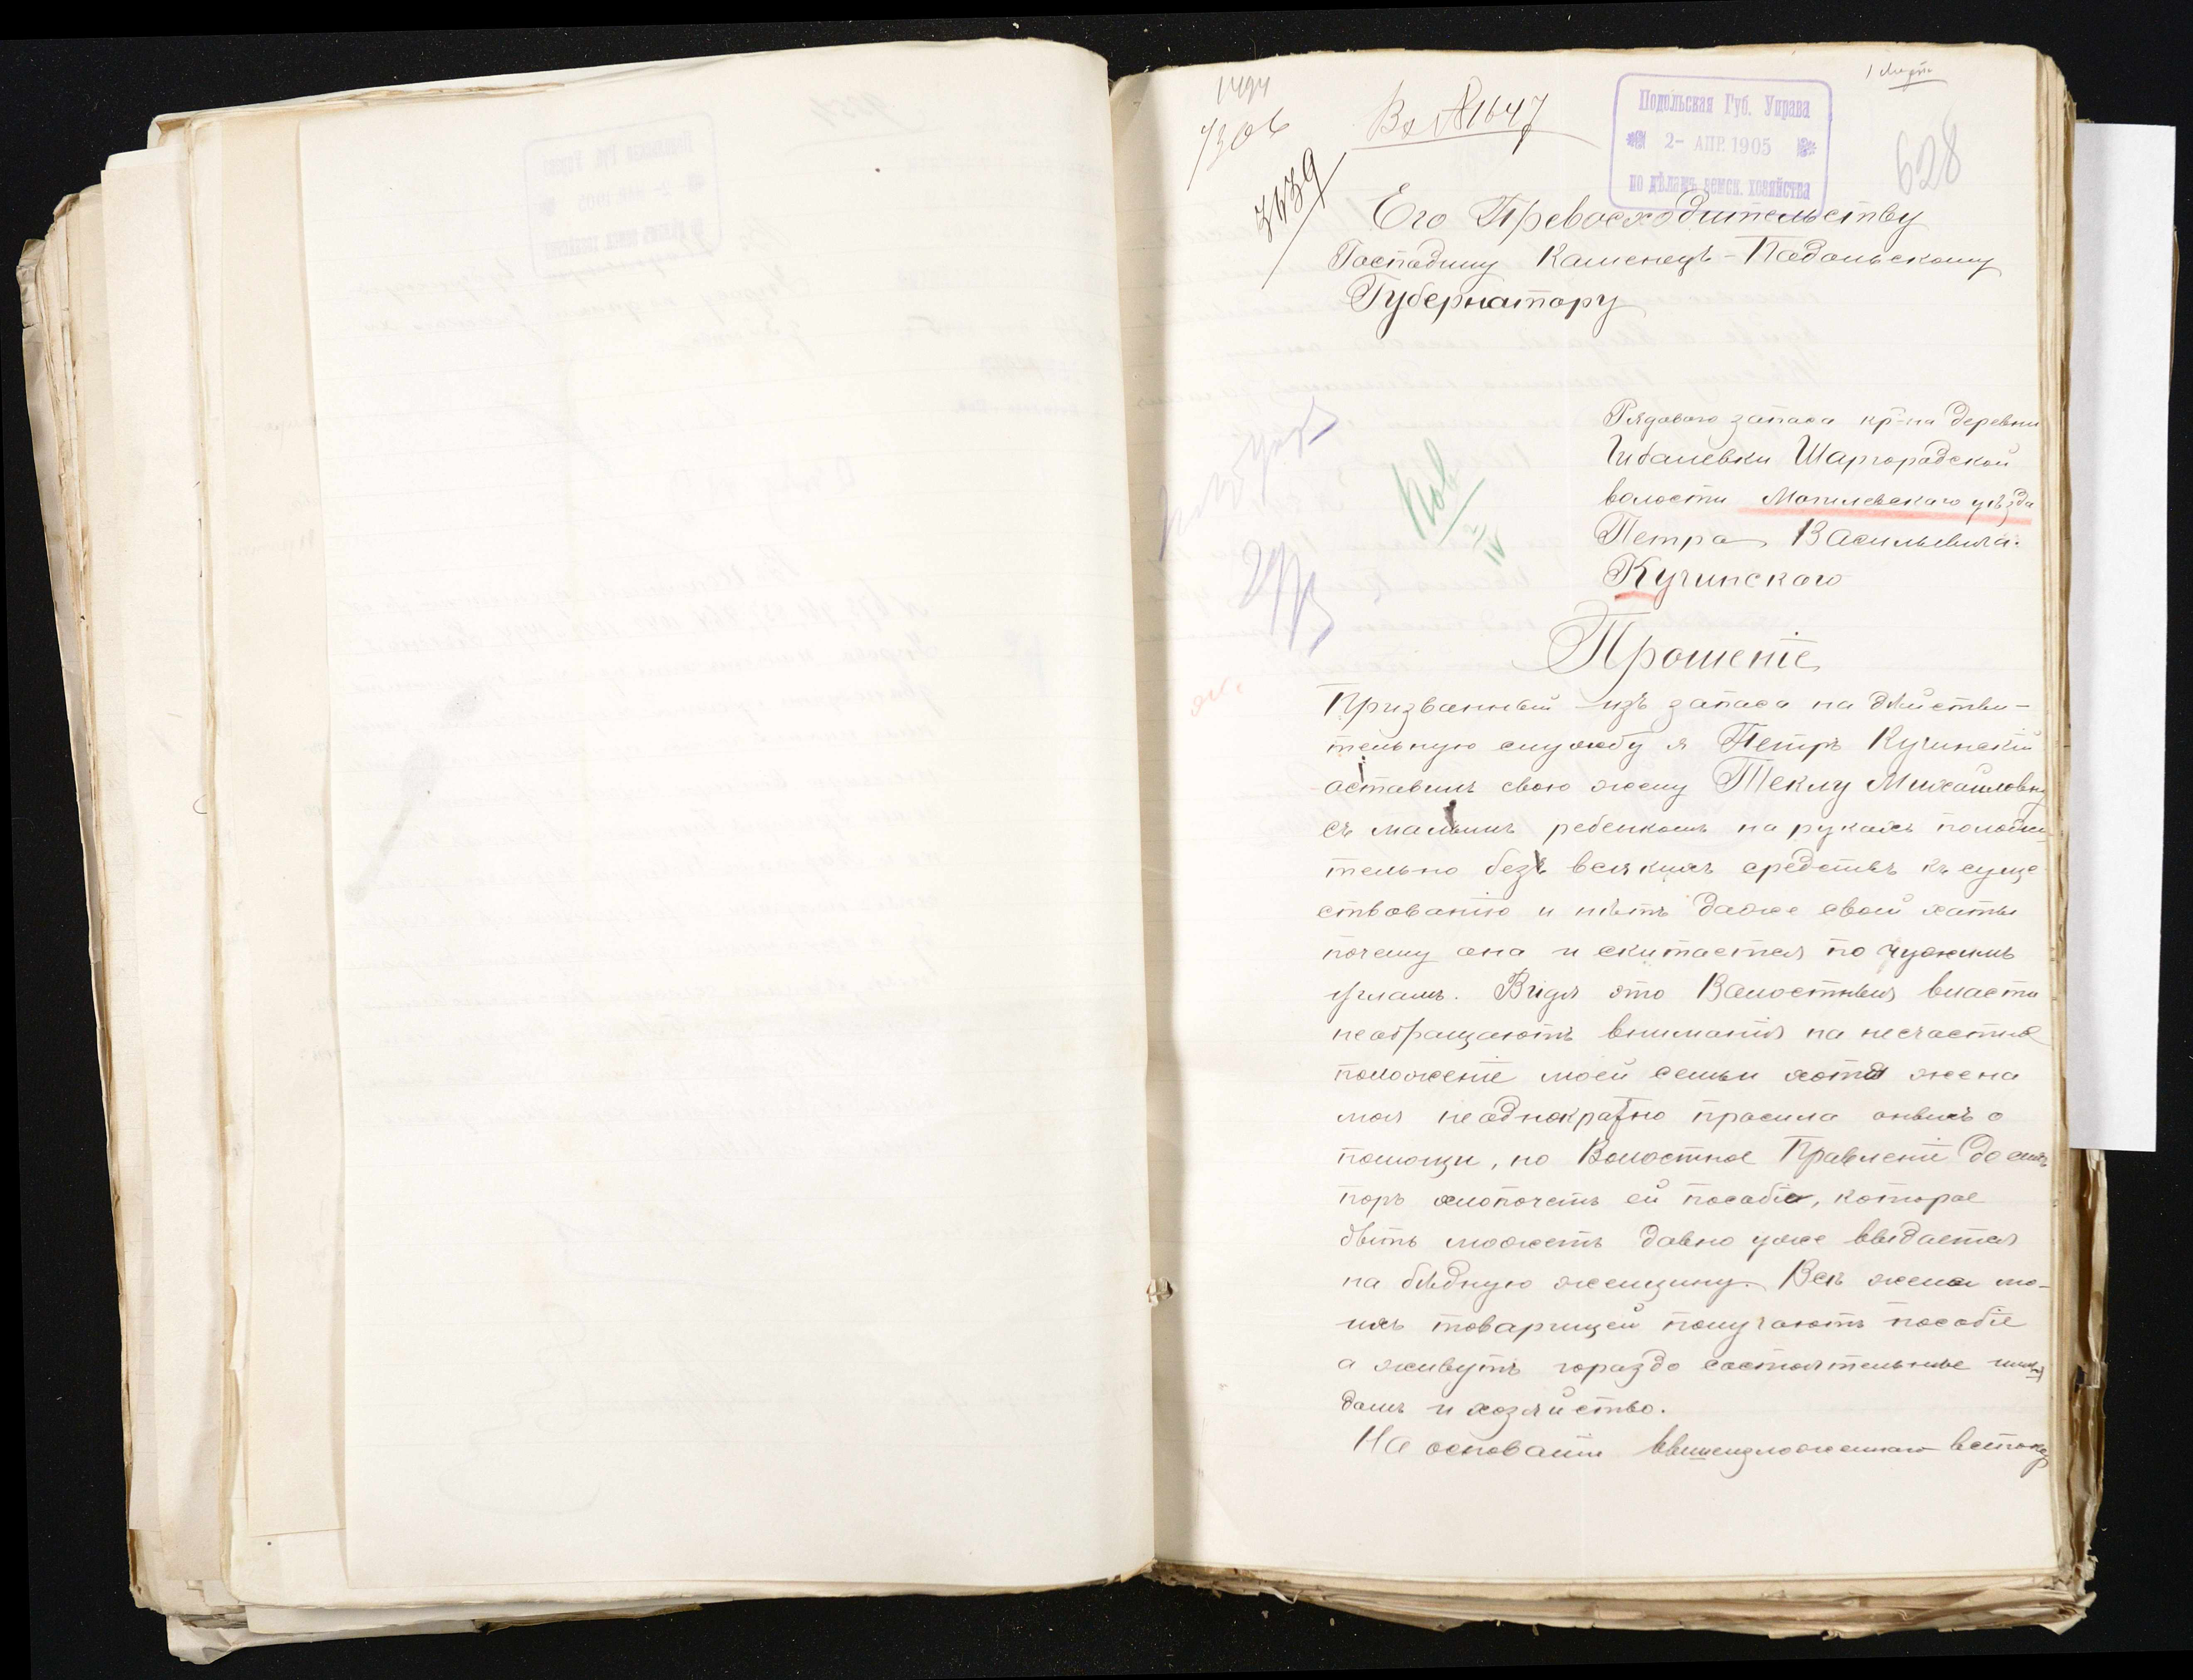 7306
Вх №1647
3439
Подольская Губ. Управа
2- АПР. 1905
по дѣламъ земск. хозяйства
628
Его Превосходительству
Господину Каменецъ-Подольскому
Губернатору
Рядового запаса кр-на деревни
Шаргородской
волости Могилевскаго уѣзда
Петра Васильевича
Кучинскаго
Прошеніе
Призванный изъ запаса на дѣйстви-
тельную службу я Петръ Кучинскій
оставилъ свою жену Теклу Михайловну
съ малымъ ребенкомъ на рукахъ положи-
тельно безъ всякихъ средствъ къ суще-
ствованію и нѣтъ даже своей хаты
почему она и скитается по чужимъ
угламъ. Видя это Волостныя власти
необращаютъ вниманія на несчастное
положеніе моей семьи хотя жена
моя неоднократно просила оныхъ о
помощи, но Волостное Правленіе до сихъ
поръ хлопочетъ ей пособіе, которое
быть можетъ давно уже выдается
на бѣдную женщину. Всѣ жены мо-
ихъ товарищей получаютъ пособіе
а живутъ гораздо состоятельнѣе
домъ и хозяйство.
На основаніи вышеизложеннаго